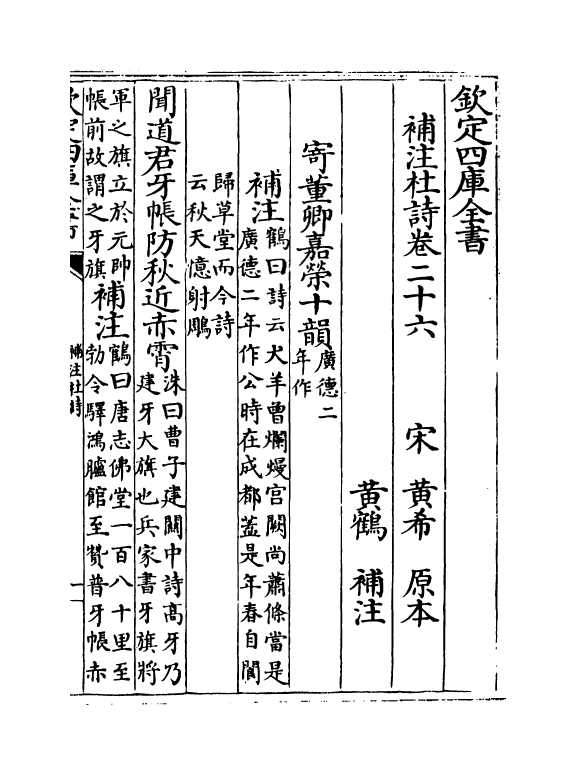 欽定四庫全書
補注杜詩卷二十六　宋　黄希　原本
黄鶴　補注
寄董卿嘉榮十韻
廣德二
年作
補注
鶴曰詩云犬羊曾爛熳宫闕尚蕭條當是
廣德二年作公時在成都葢是年春自閬
歸草堂而今詩
云秋天憶射鵰
聞道君牙帳防秋近赤霄
洙曰曹子建闗中詩髙牙乃
建牙大旗也兵家書牙旗將
軍之旗立於元帥
帳前故謂之牙旗
補注
鶴曰唐志佛堂一百八十里至
勃令驛鴻臚館至贊普牙帳赤
欽定四庫全書
補注杜詩
一